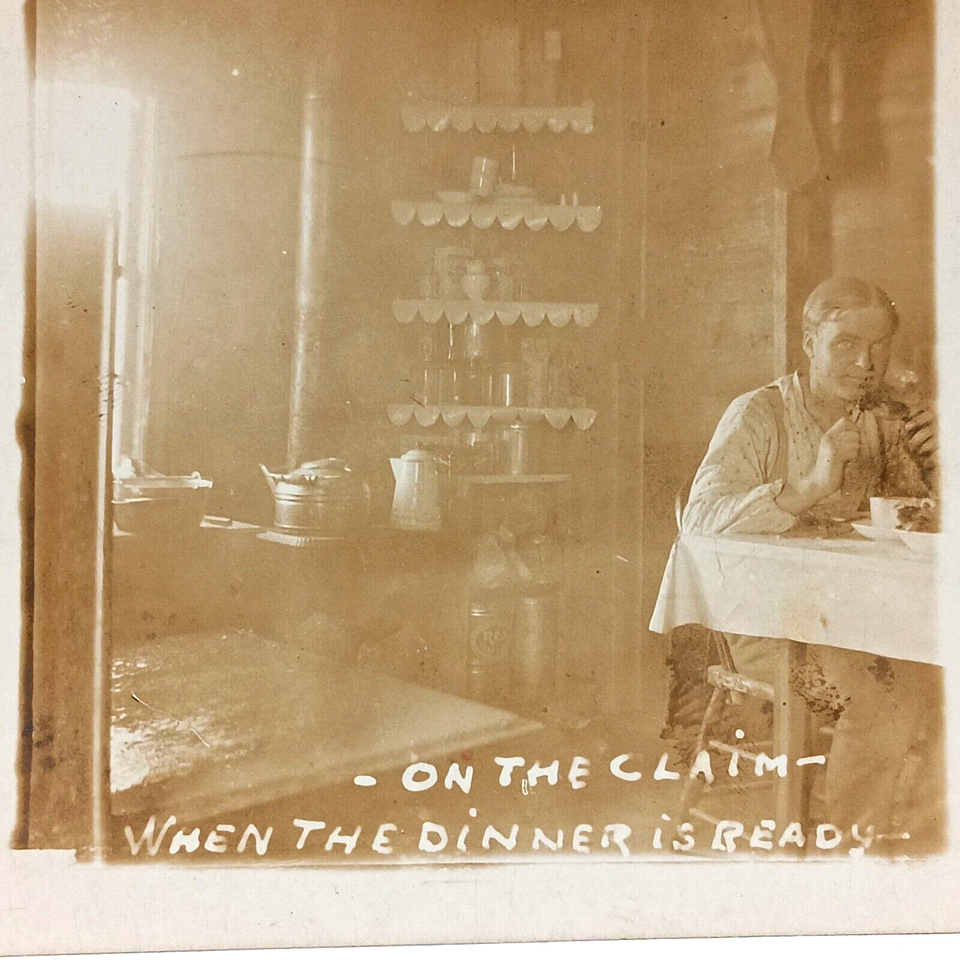 - ON THE CLAiM -
WHEN THE DiNNER iS READY -